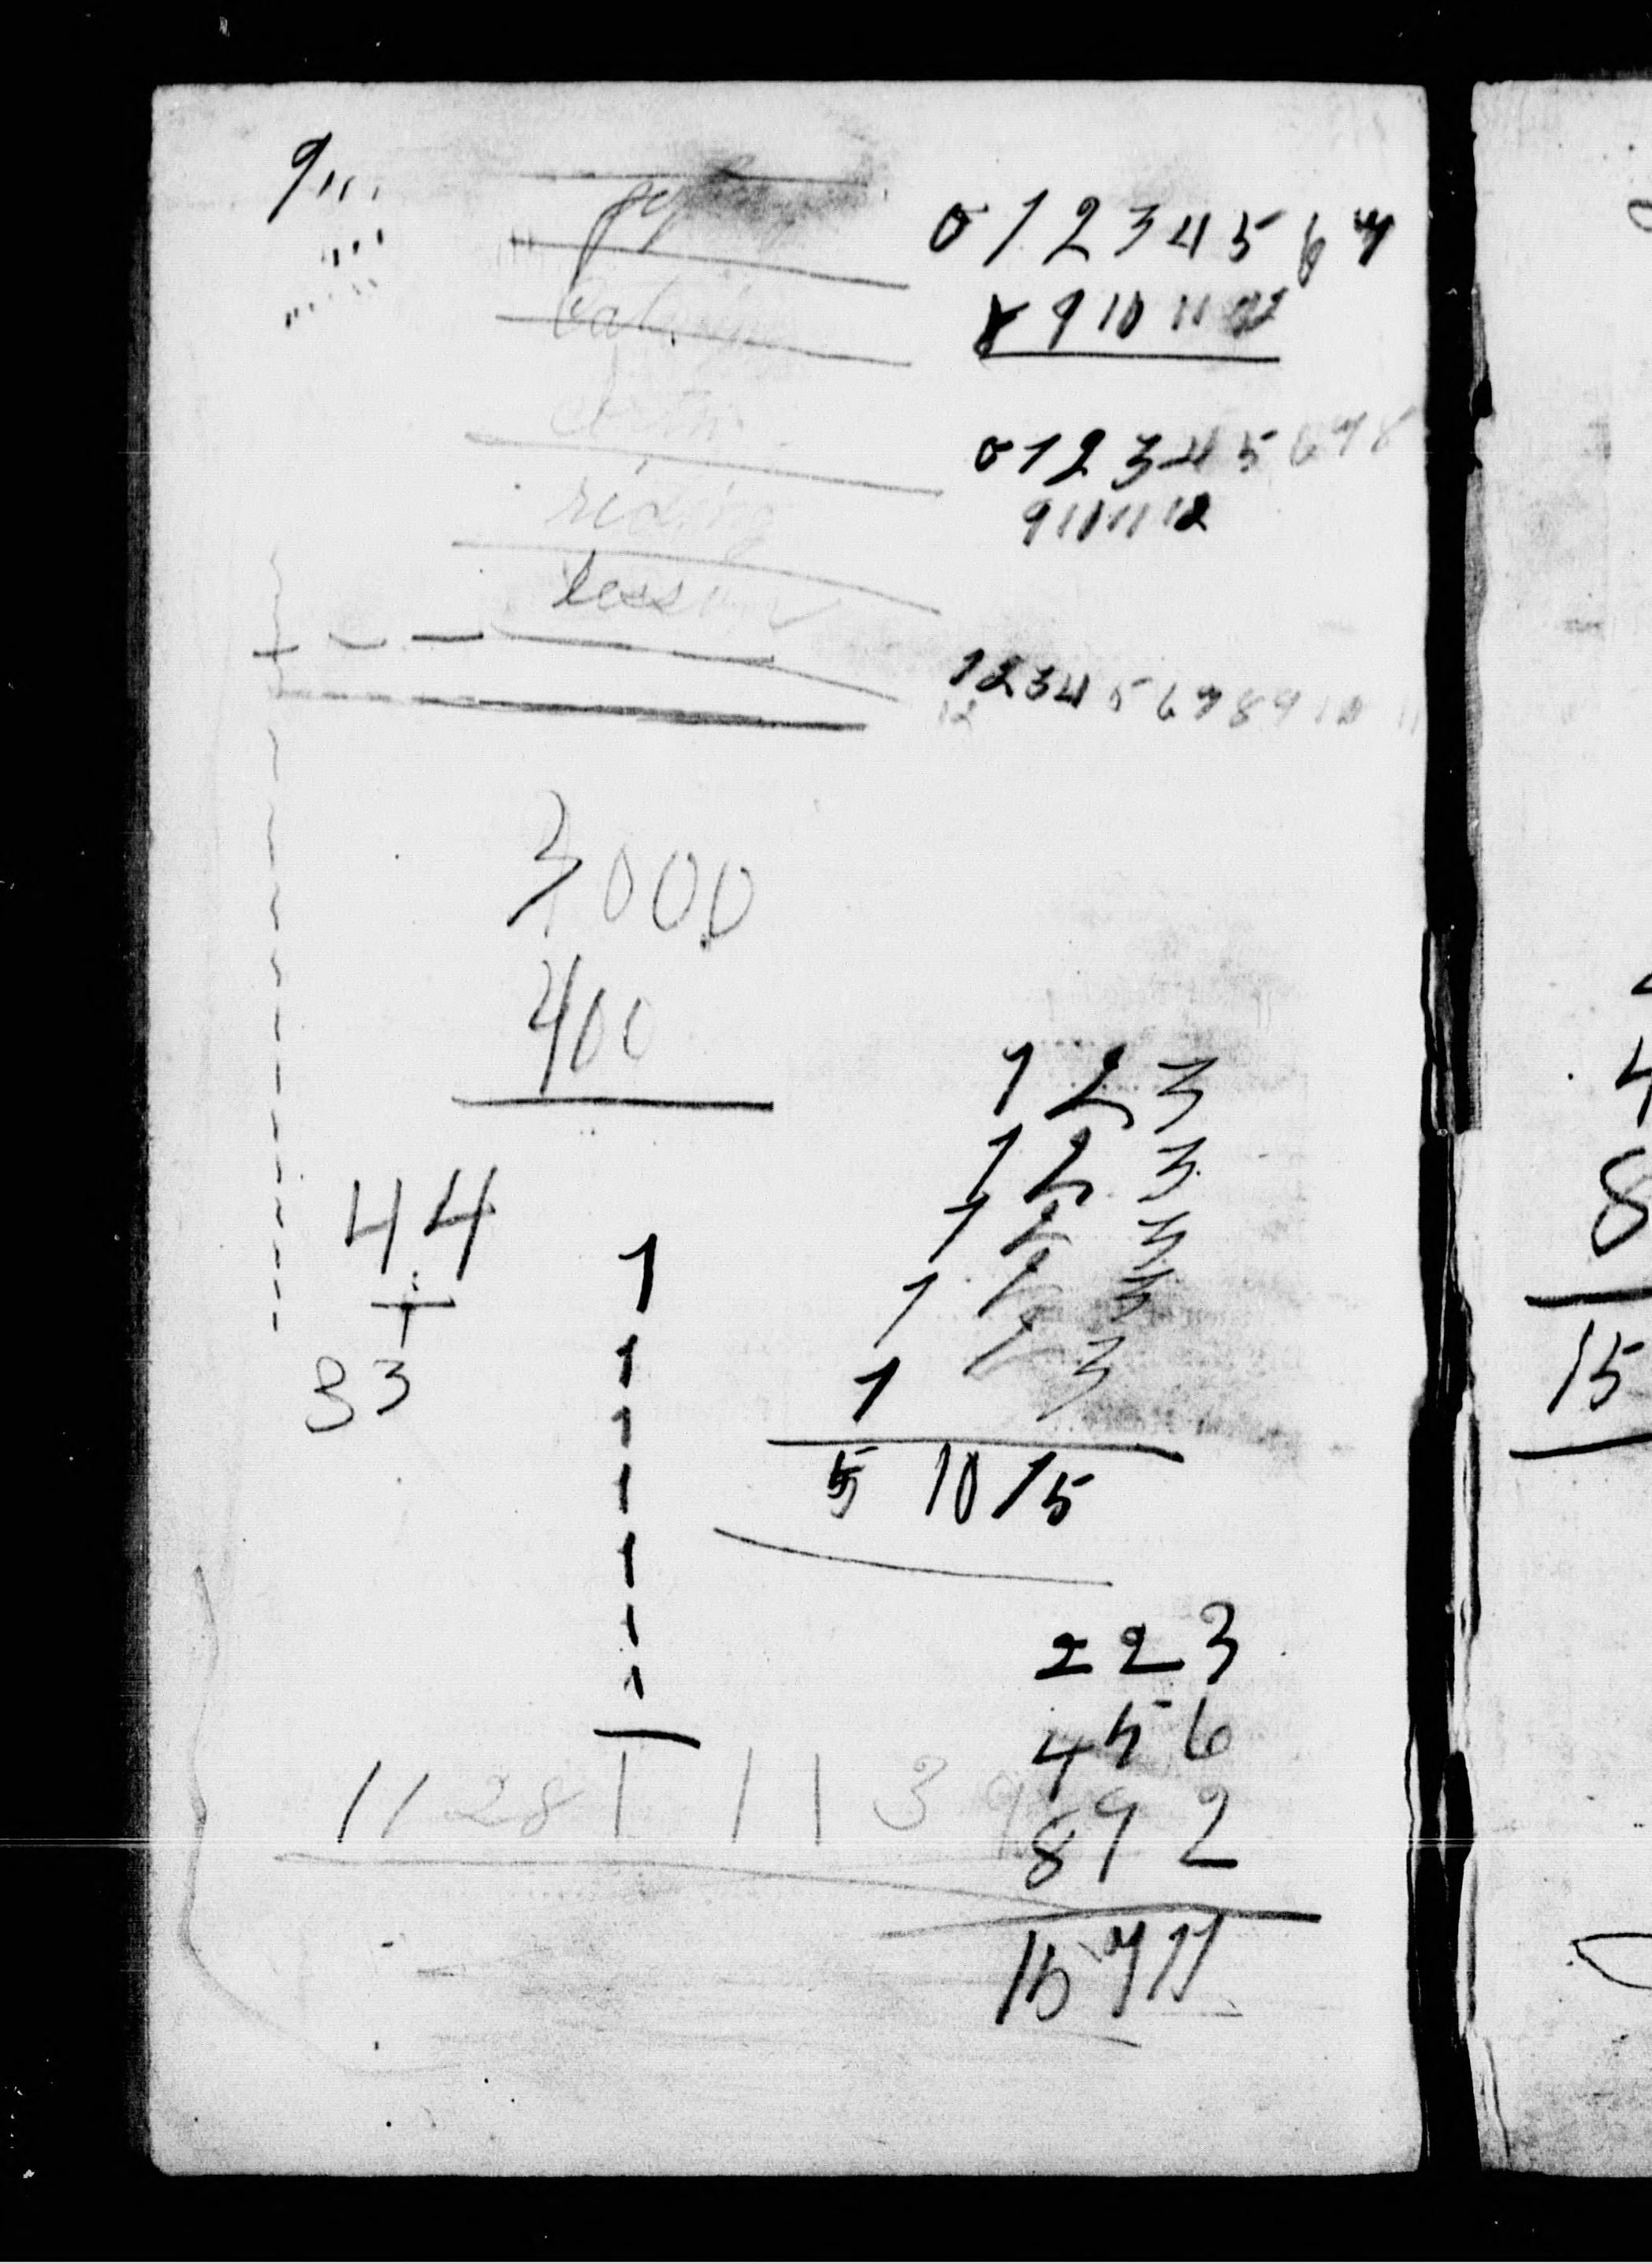 9
0 1 2 3 4 5 6 7
8 9 10 11 12
0 1 2 3 4 5 6 7 8
9 10 11 12
riding
lesson
1 2 3 4 5 6 7 8 9 10 11
12
3000
400
1 2 3
1 2 3
1 2 3
1 2 3
1 2 3
5 10 15
44
33
1
1
1
1
1
1
1
2 2 3
4 5 6
8 9 2
11 28 1 1 1 3 9
15 7 11
4
8
15